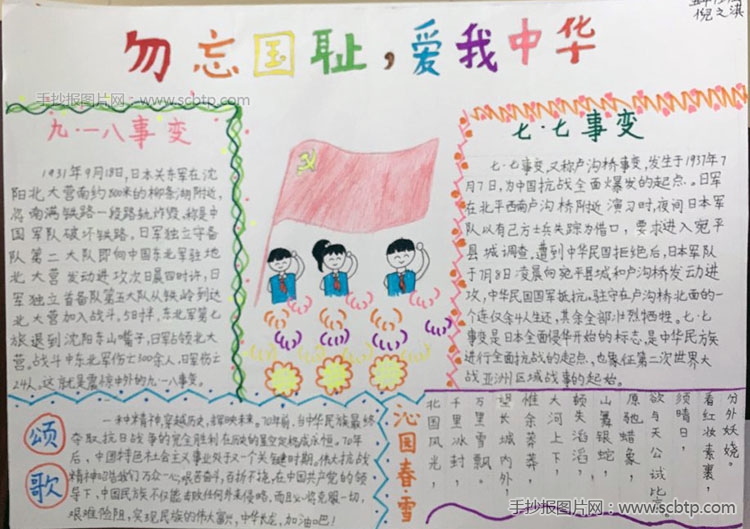 倪之淇
勿忘国耻，爱我中华
手抄报图片网：www.scbtp.com
九·一八事变
1931年9月18日，日本关东军在沈
阳北大营南约800米的柳条湖附近，
将南满铁路一段路轨炸毁，称是中
国军队破坏铁路，日军独立守备
队第二大队即向中国东北军驻地
北大营发动进攻次日晨四时许，日
军独立首备队第五大队从铁岭到达
北大营加入战斗。5日拌，东北军第七
旅退到沈阳东山嘴子，日军占领北大
营。战斗中东北军伤亡300余人，日军伤亡
24人。这就是震惊中外的九·一八事变。
七·七事变
七·七事变，又称卢沟桥事变，发生于1937年
7月7日，为中国抗战全面爆发的起点。日军
在北平西南卢沟桥附近演习时，夜间日本军
队以有己方士兵失踪为借口，要求进入宛平
县城调查，遭到中华民国拒绝后，日本军队
于7月8日凌晨向宛平县城和卢沟桥发动进
攻，中华民国国军抵抗。驻守在卢沟桥北面的一
个连仅余4人生还，其余全部壮烈牺牲。七·七
事变是日本全面侵华开始的标志，是中华民族
进行全面抗战的起点，也象征第二次世界大
战亚洲区域战事的起始。
颂歌
一种精神，穿越历史，辉映未来。70年前，当中华民族最终
夺取抗日战争的完全胜利，在历史的星空就铸成永恒。70年
后，中国特色社会主义事业处于又一个关键时期。伟大抗战
精神昭告我们万众一心，艰苦奋斗，百折不挠，在中国共产党的领
导下，中国民族不仅能击败任何外来侵略，而且必将克服一切，
艰难险阻，实现民族的伟大富兴，中华长龙，加油吧！
沁园春·雪
北国风光
千里冰封，
万里雪飘。
望长城内外，
惟余莽莽，
大河上下，
顿失滔滔，
山舞银蛇，
原驰蜡象，
欲与天公试比
须晴日，
看红妆素裹，
分外妖娆。
手抄报图片网：www.scbtp.com